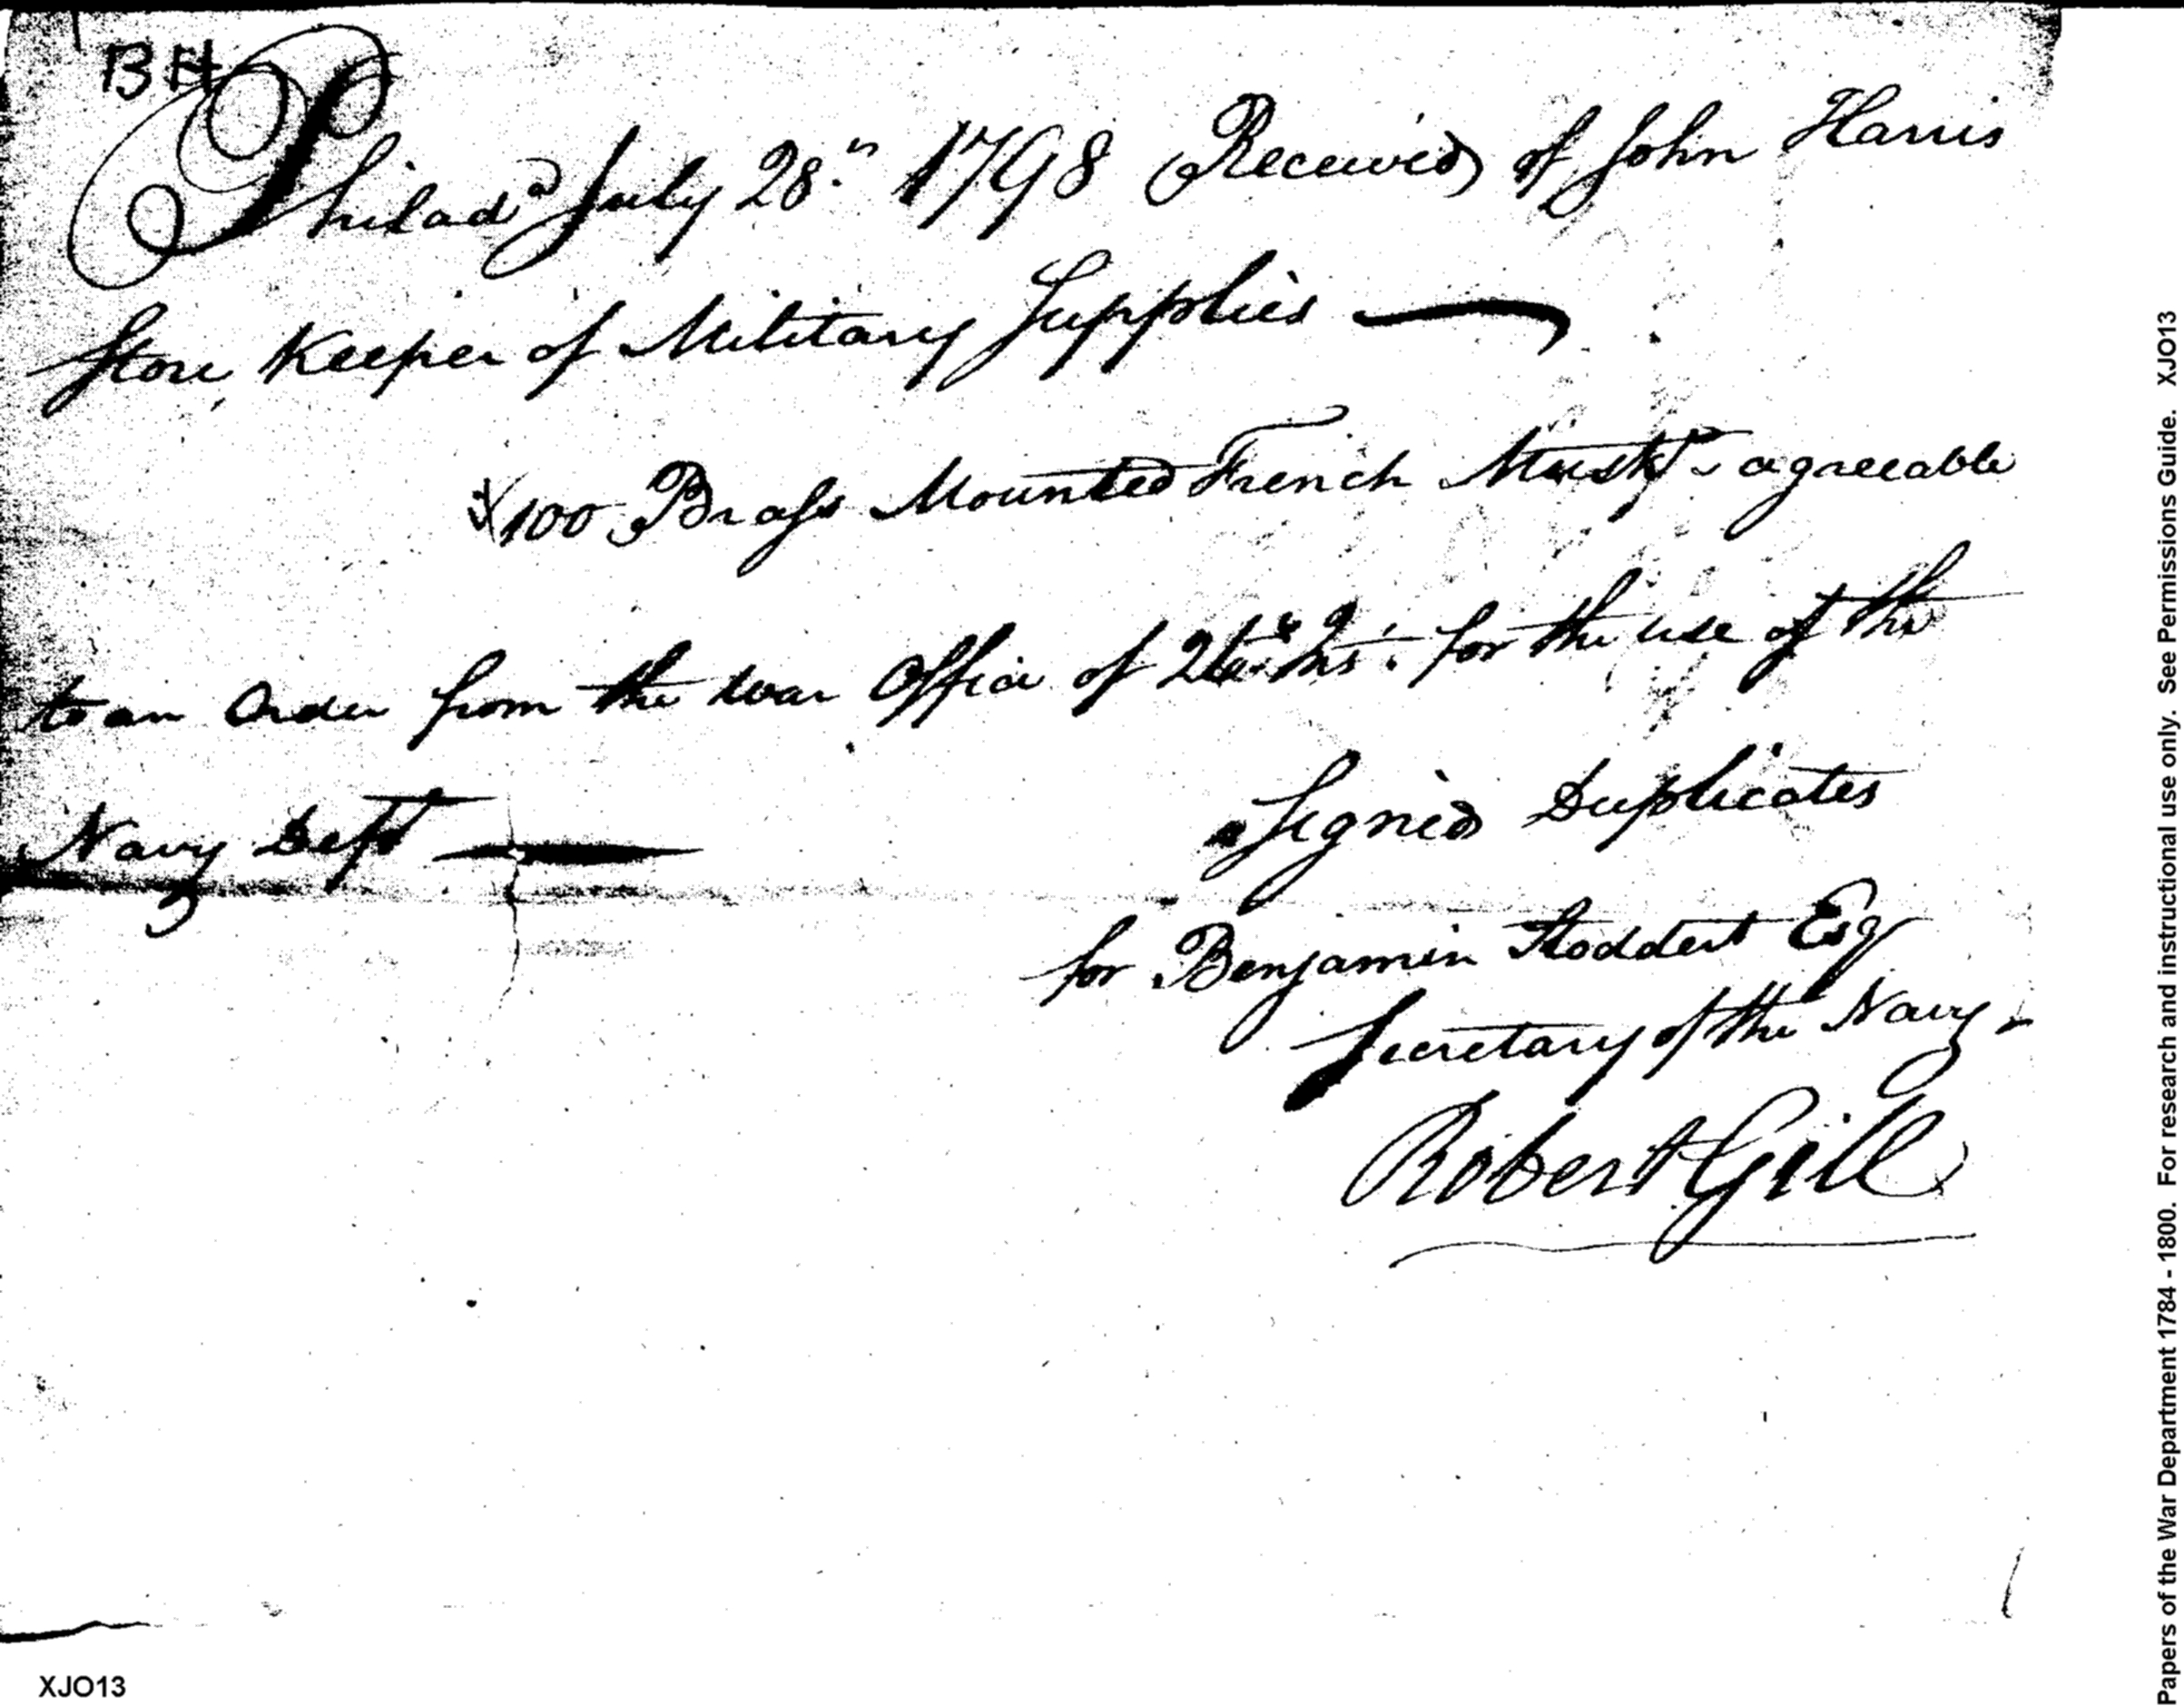 BH
Philada July 28th 1798 Received of John Harris
Store Keeper of Military Supplies
100 Brass Mounted French Muskts agreeable
to an Order from the War Office of for the use of the
Navy Dept
Signed Duplicates
for Benjamin Stoddert Esq
Secretary of the Navy
Robert Gill
XJO13
Papers of the War Department 1784 - 1800. For research and instructional use only. See Permissions Guide. XJO13